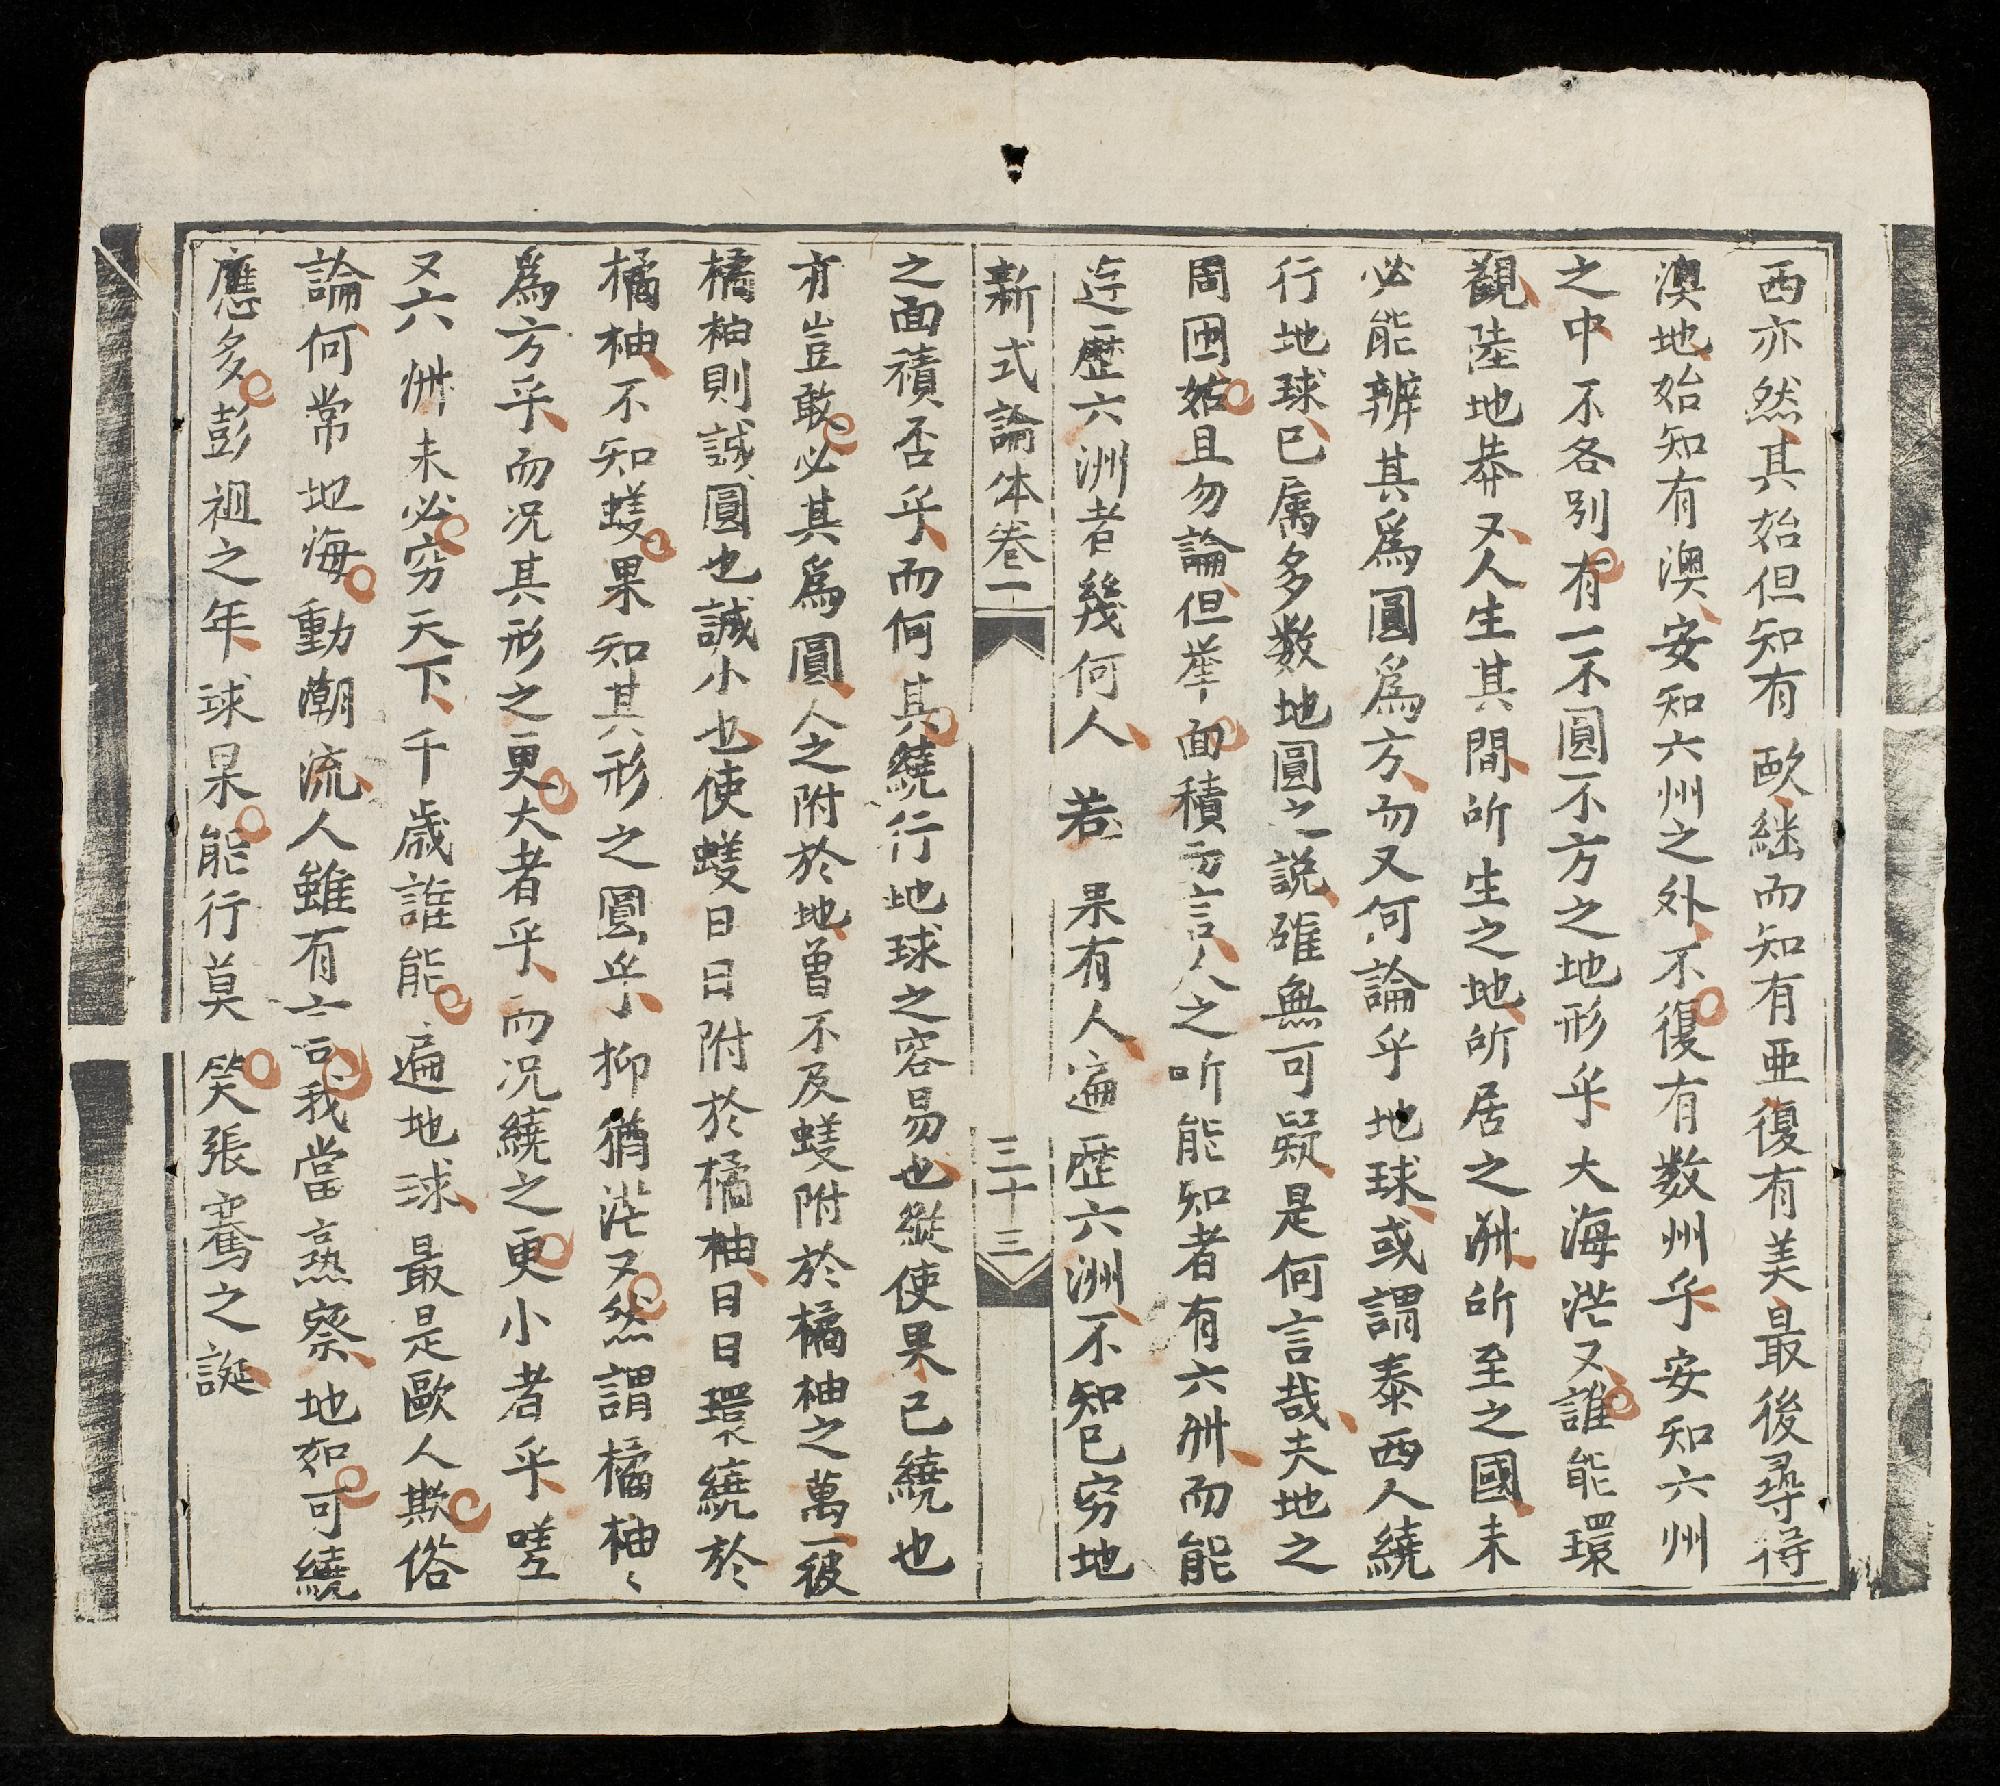 西亦然其始但知有歐継而知有亜復有美最後尋得
澳地始知有澳安知六州之外不復有数州乎安知六州
之中不各別有一不圓不方之地形乎大海茫又誰能環
觀陸地莽又人生其間所生之地所居之洲所至之國未
必能辨其爲圓爲方而又何論乎地球或謂泰西人繞
行地球已属多数地圓之説雖無可疑是何言哉夫地之
周囲姑且勿論但举面積言人之所能知者有六洲而能
迄歷六洲者幾何人若果有人遍歷六洲不知已穷地
新式論体卷一 三十三
之面積否乎而何其繞行地球之容易也縱使果已繞也
亦豈敢必其爲圓人之附於地曾不及蝬附於橘柚之萬一彼
橘柚則誠圓也誠小也使蝬日日附於橘柚日日環繞於
橘柚不知蝬果知其形之圓乎抑猶茫又然謂橘柚〻
爲方乎而况其形之更大者乎而况繞之更小者乎嗟
又六洲未必窮天下千歳誰能遍地球最是歐人欺俗
論何常地海動潮流人雖有言我當熹察地如可繞
應多彭祖之年球果能行莫笑張騫之誕